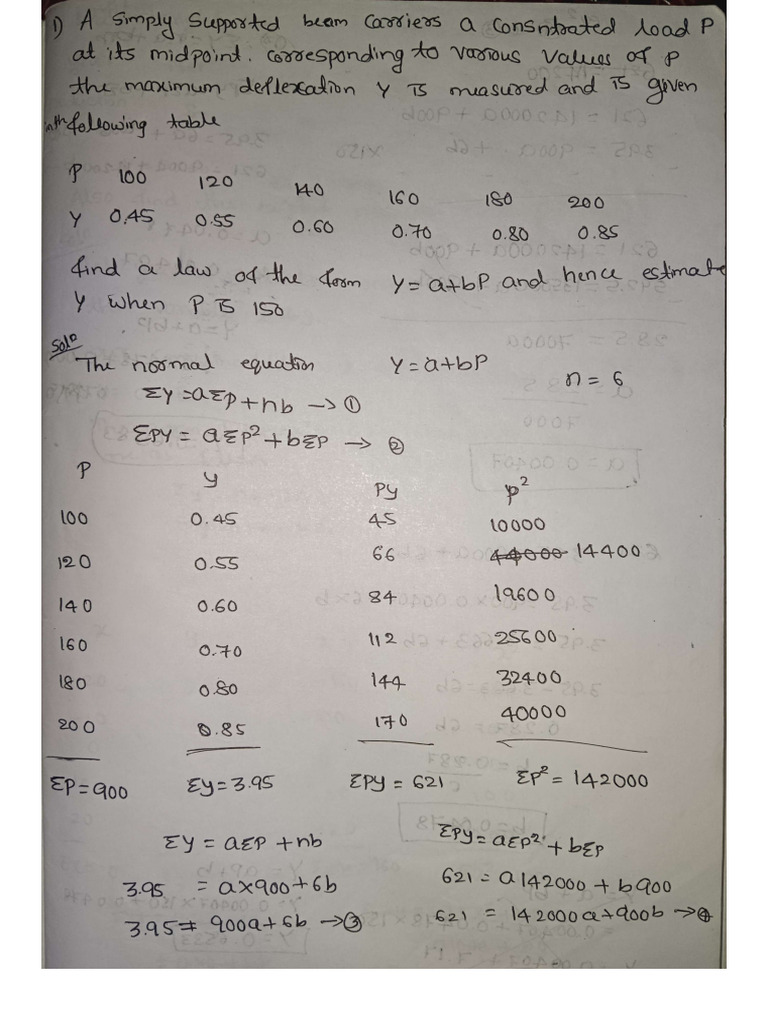 1) A Simply Supported beam Carriers a Consntrated load P
at its midpoint. corresponding to various values of P
the maximum deflexcation Y is measured and is given
inth following table
P 100 120 140 160 180 200
Y 0.45 0.55 0.60 0.70 0.80 0.85
find a law of the form Y = a+bP and hence estimate
Y when P is 150
Solⁿ
The normal equation Y = a+bP n = 6
ΣY = aΣP + nb → ①
ΣPY = aΣP² + bΣP → ②
P y PY P²
100 0.45 45 10000
120 0.55 66 44000 14400
140 0.60 84 19600
160 0.70 112 25600
180 0.80 144 32400
200 0.85 170 40000
ΣP = 900 ΣY = 3.95 ΣPY = 621 ΣP² = 142000
ΣY = aΣP + nb ΣPY = aΣP² + bΣP
3.95 = a×900+6b 621 = a142000 + b900
3.95 = 900a+6b → ③ 621 = 142000a+900b → ④